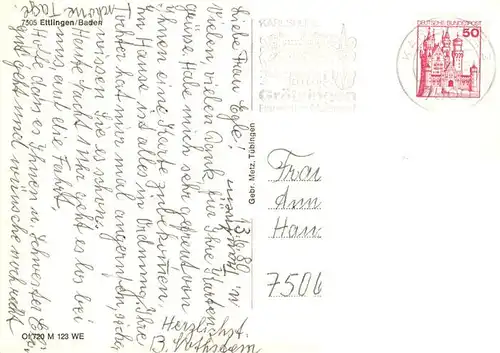 7505 Ettlingen/Baden
13.6.80
Liebe Frau Egle!
vielen, vielen Dank für Ihre Karten
grüße. Habe mich sehr gefreut von
Ihnen eine Karte zu bekommen.
Im Hause ist alles in Ordnung. Ihre
Tochter hat mir mal angerufen, sicher
wissen Sie es schon.
Heute Nacht 1 Uhr geht es los bei
uns auf die Fahrt.
Hoffe dass es Ihnen u. Schwester
gut geht und wünsche noch recht
schöne Tage
Herzlichst
B.
Gebr. Metz, Tübingen
OI 720 M 123 WE
KARLSRUHE
Grötzingen
DEUTSCHE BUNDESPOST
50
Frau
Ann
Hau
7506